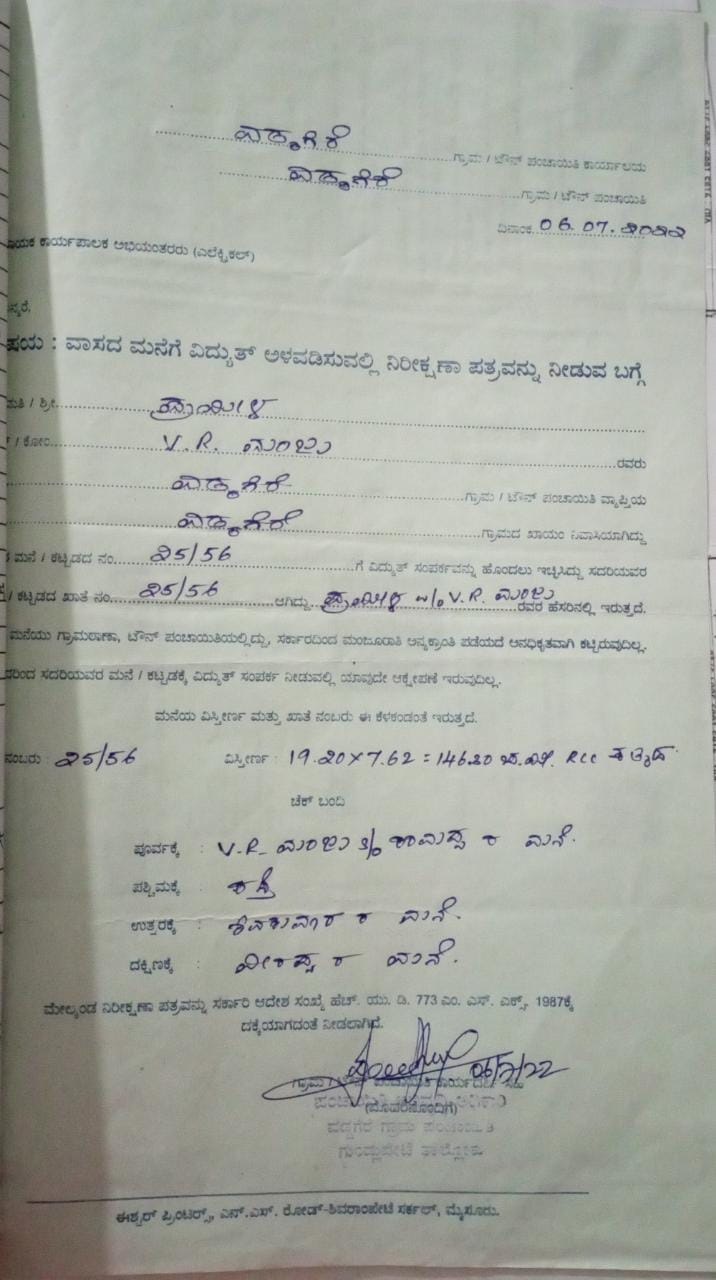 ವಡ್ಡಗೆರೆ ಗ್ರಾಮ / ಟೌನ್ ಪಂಚಾಯಿತಿ ಕಾರ್ಯಾಲಯ
ವಡ್ಡಗೆರೆ ಗ್ರಾಮ / ಟೌನ್ ಪಂಚಾಯಿತಿ
ದಿನಾಂಕ 06.07.2022
ಕಾರ್ಯಪಾಲಕ ಅಭಿಯಂತರರು (ಎಲೆಕ್ಟ್ರಿಕಲ್)
: ವಾಸದ ಮನೆಗೆ ವಿದ್ಯುತ್ ಅಳವಡಿಸುವಲ್ಲಿ ನಿರೀಕ್ಷಣಾ ಪತ್ರವನ್ನು ನೀಡುವ ಬಗ್ಗೆ
/ ಶ್ರೀ
/ ಕೋಂ V.R. ಮಂಜು ರವರು
ವಡ್ಡಗೆರೆ ಗ್ರಾಮ / ಟೌನ್ ಪಂಚಾಯಿತಿ ವ್ಯಾಪ್ತಿಯ
ವಡ್ಡಗೆರೆ ಗ್ರಾಮದ ಖಾಯಂ ನಿವಾಸಿಯಾಗಿದ್ದು
ಮನೆ / ಕಟ್ಟಡದ ನಂ. 25/56 ಗೆ ವಿದ್ಯುತ್ ಸಂಪರ್ಕವನ್ನು ಹೊಂದಲು ಇಚ್ಛಿಸಿದ್ದು ಸದರಿಯವರ
/ ಕಟ್ಟಡದ ಖಾತೆ ನಂ. 25/56 ಆಗಿದ್ದು w/o V.R. ಮಂಜು ರವರ ಹೆಸರಿನಲ್ಲಿ ಇರುತ್ತದೆ.
ಮನೆಯು ಗ್ರಾಮಠಾಣಾ, ಟೌನ್ ಪಂಚಾಯಿತಿಯಲ್ಲಿದ್ದು, ಸರ್ಕಾರದಿಂದ ಮಂಜೂರಾತಿ ಅನ್ಯಕ್ರಾಂತಿ ಪಡೆಯದೆ ಅನಧಿಕೃತವಾಗಿ ಕಟ್ಟಿರುವುದಿಲ್ಲ.
ಸದರಿಯವರ ಮನೆ / ಕಟ್ಟಡಕ್ಕೆ ವಿದ್ಯುತ್ ಸಂಪರ್ಕ ನೀಡುವಲ್ಲಿ ಯಾವುದೇ ಆಕ್ಷೇಪಣೆ ಇರುವುದಿಲ್ಲ.
ಮನೆಯ ವಿಸ್ತೀರ್ಣ ಮತ್ತು ಖಾತೆ ನಂಬರು ಈ ಕೆಳಕಂಡಂತೆ ಇರುತ್ತದೆ.
ನಂಬರು : 25/56 ವಿಸ್ತೀರ್ಣ : 19.20 X 7.62 = 146.30 ಚ.ಮೀ. RCC ಕಟ್ಟಡ
ಚೆಕ್ ಬಂದಿ
ಪೂರ್ವಕ್ಕೆ : V.R. ಮಂಜು s/o ರ ಮನೆ.
ಪಶ್ಚಿಮಕ್ಕೆ : ರಸ್ತೆ
ಉತ್ತರಕ್ಕೆ : ಶಿವಕುಮಾರ ರ ಮನೆ.
ದಕ್ಷಿಣಕ್ಕೆ : ವೀರಪ್ಪ ರ ಮನೆ.
ಮೇಲ್ಕಂಡ ನಿರೀಕ್ಷಣಾ ಪತ್ರವನ್ನು ಸರ್ಕಾರಿ ಆದೇಶ ಸಂಖ್ಯೆ ಹೆಚ್. ಯು. ಡಿ. 773 ಎಂ. ಎಸ್. ಎಕ್ಸ್. 1987ಕ್ಕೆ
ದಕ್ಕೆಯಾಗದಂತೆ ನೀಡಲಾಗಿದೆ.
06/7/22
ಗ್ರಾಮ / ಟೌನ್ ಪಂಚಾಯಿತಿ ಕಾರ್ಯದರ್ಶಿ ಸಹಿ
(ಮೊಹರಿನೊಂದಿಗೆ)
ವಡ್ಡಗೆರೆ ಗ್ರಾಮ ಪಂಚಾಯಿತಿ
ಗುಂಡ್ಲುಪೇಟೆ ತಾಲ್ಲೋಕು
ಈಶ್ವರ್ ಪ್ರಿಂಟರ್ಸ್, ಎನ್.ಎಸ್. ರೋಡ್-ಶಿವರಾಂಪೇಟೆ ಸರ್ಕಲ್, ಮೈಸೂರು.